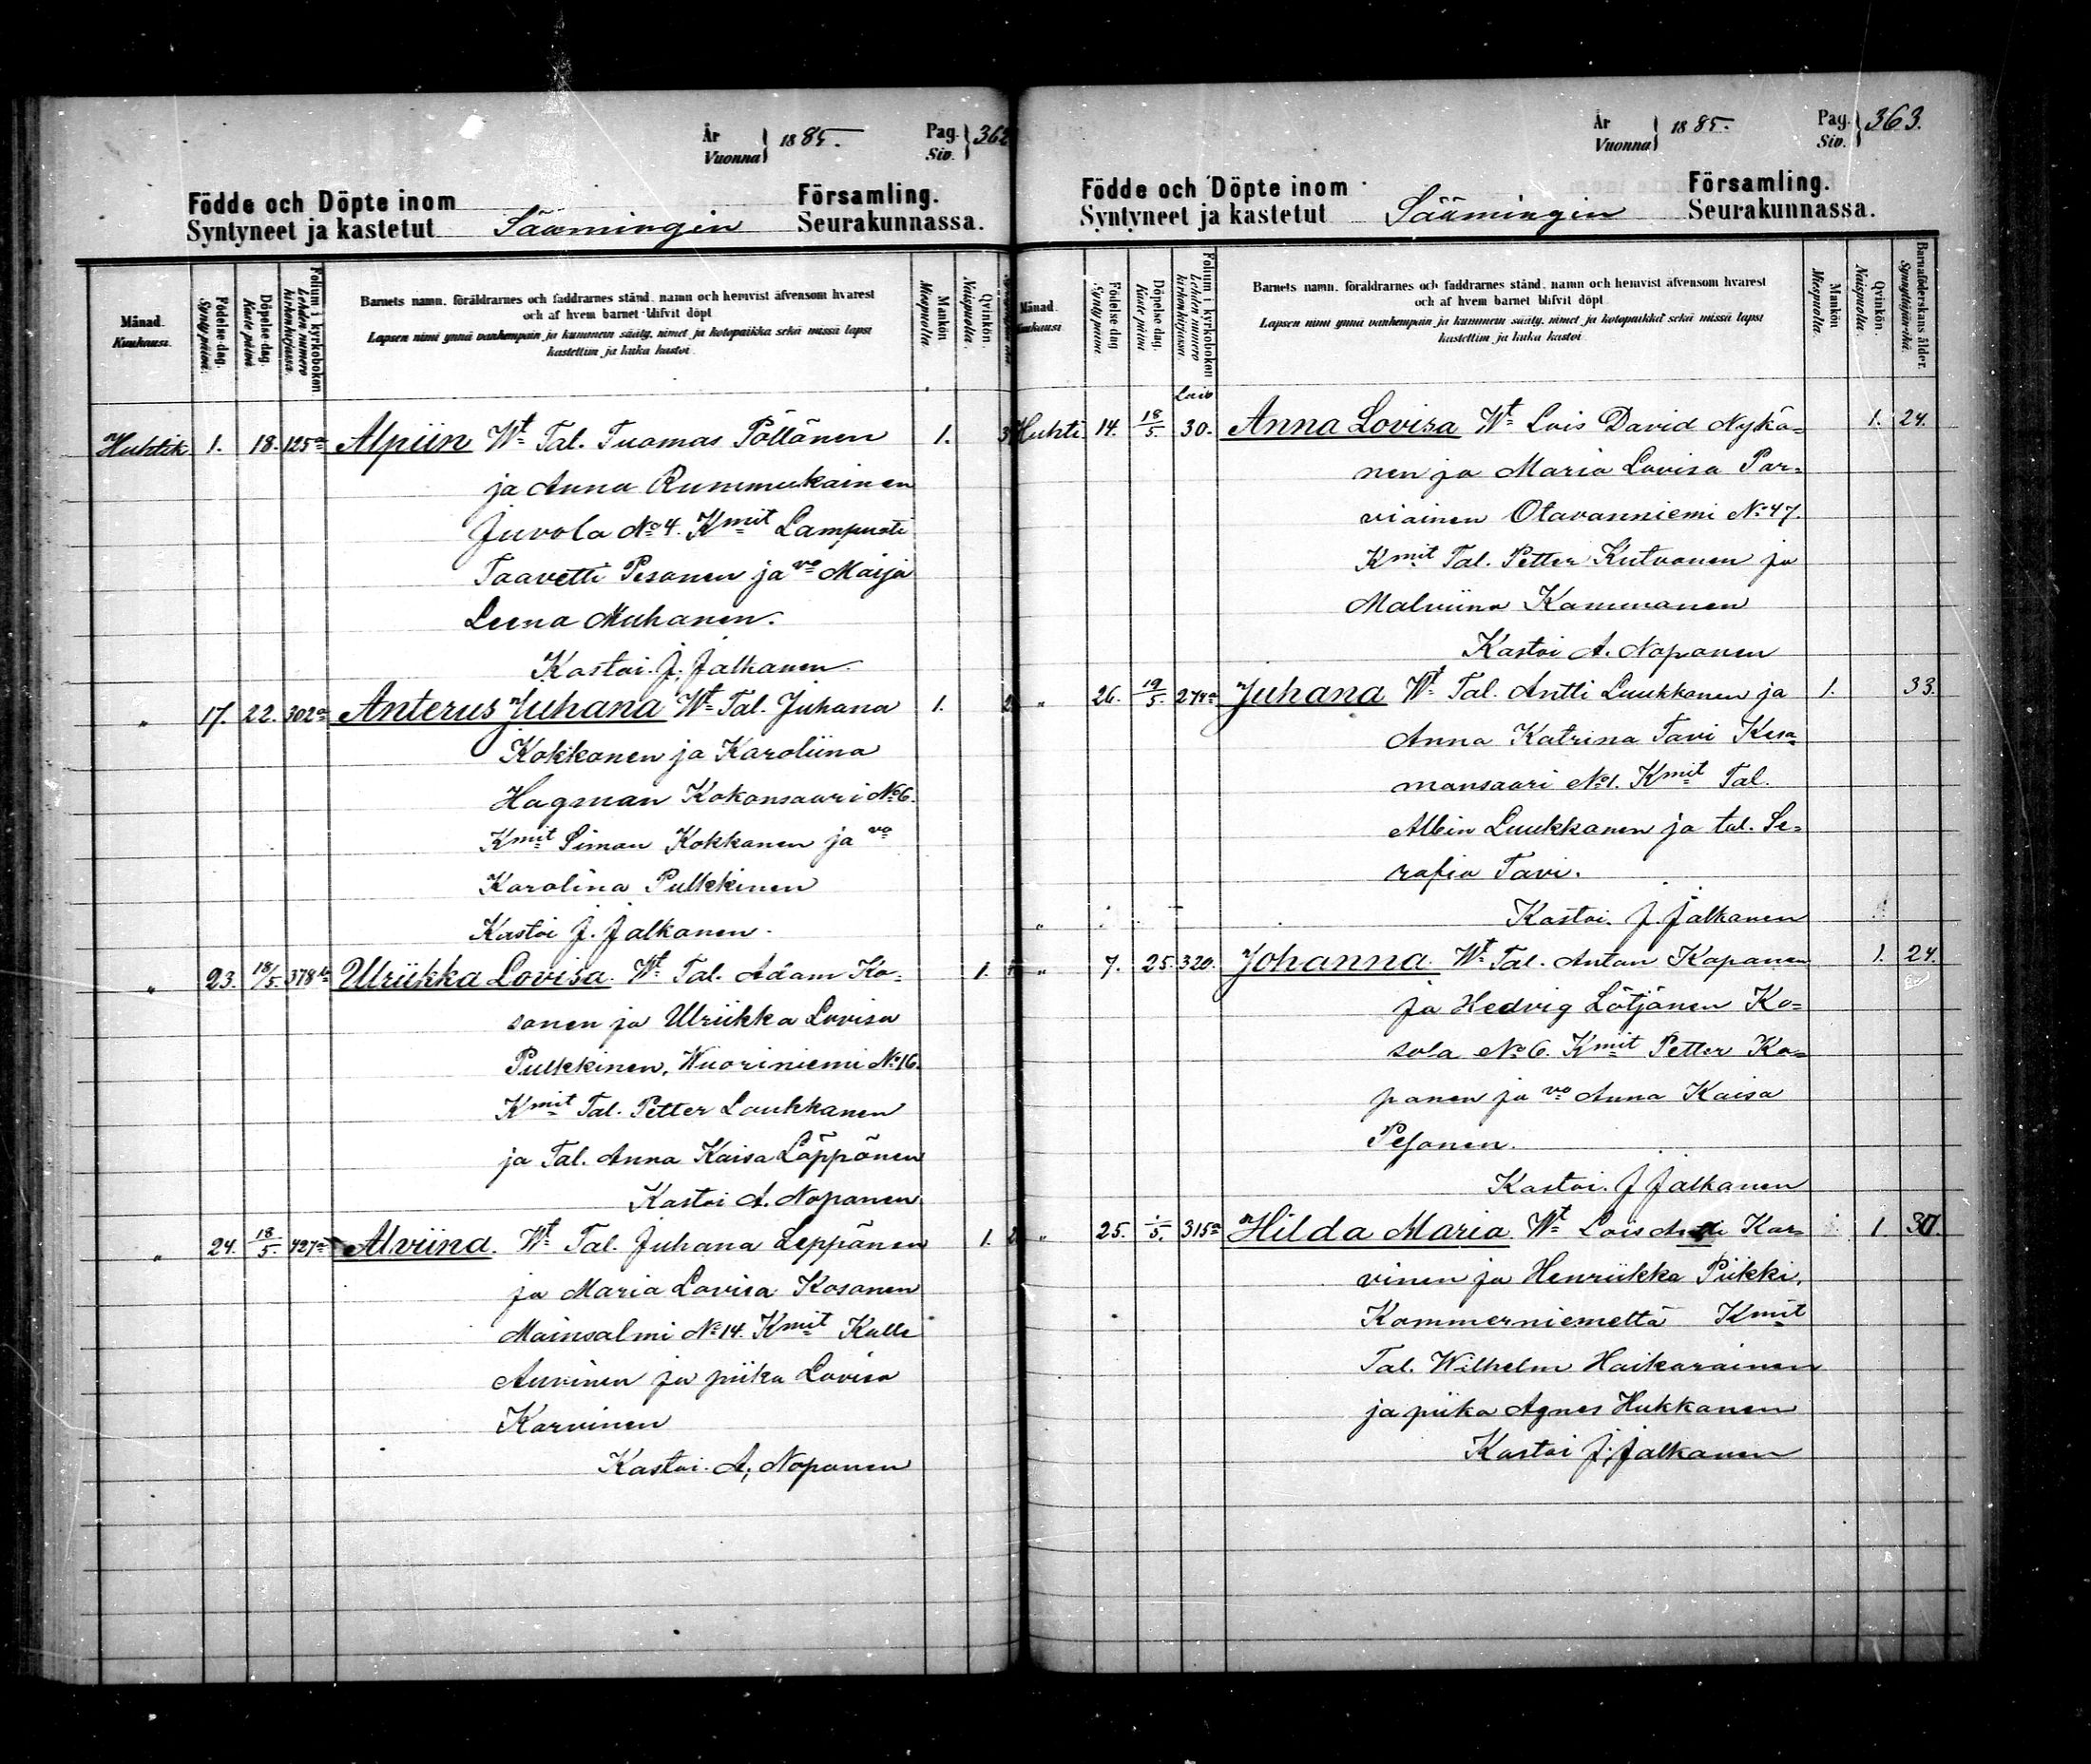 År Vuonna 1885. Pag. Siv. 362
Födde och Döpte inom Säämingin Församling.
Syntyneet ja kastetut Seurakunnassa.
Månad. Kuukausi.
Födelse-dag. Synty päivä.
Döpelse-dag. Kaste päivä
Folium i kyrkoboken Lehden numero kirkonkirjassa.
Barnets namn, föräldrarnes och faddrarnes stånd, namn och hemvist äfvensom hvarest
och af hvem barnet blifvit döpt
Lapsen nimi ynnä vanhempain ja kummein sääty, nimet ja kotopaikka sekä missä lapsi
kastettiin ja kuka kastoi
Mankön Miespuolta.
Qvinkön. Naispuolta.
Huhtik 1. 18. 125a Alpiin Wt Tal. Tuomas Pöllänen 1.
ja Anna Rummukainen
Juvola No 4. Kmit Lampuoti
Taavetti Pesonen ja vo Maija
Leena Muhanen.
Kastoi. J. Jalkanen.
" 17. 22. 302a Anterus Juhana Wt Tal. Juhana 1.
Kokkonen ja Karoliina
Hagman Kokonsaari No 6.
Kmit Simon Kokkonen ja vo
Karolina Pulkkinen
Kastoi J. Jalkanen.
" 23. 18/5. 378b Ulriikka Lovisa. Wt Tal. Adam Ko- 1.
sonen ja Ulriikka Lovisa
Pulkkinen, Wuoriniemi No 16.
Kmit Tal. Petter Loukkanen
ja Tal. Anna Kaisa Läppönen
Kastoi A. Noponen
" 24. 18/5. 427a Alviina. Wt Tal. Juhana Leppänen 1.
ja Maria Lovisa Kosonen
Mainsalmi No 14. Kmit Kalle
Auvinen ja piika Lovisa
Karvinen
Kastoi. A. Noponen
År Vuonna 1885. Pag. Siv. 363.
Födde och Döpte inom Säämingin Församling.
Syntyneet ja kastetut Seurakunnassa.
Månad. Kuukausi
Födelse-dag Synty päivä
Döpelse-dag. Kaste päivä
Folium i kyrkoboken Lehden numero kirkonkirjassa.
Barnets namn, föräldrarnes och faddrarnes stånd, namn och hemvist äfvensom hvarest
och af hvem barnet blifvit döpt
Lapsen nimi ynnä vanhempain ja kummein sääty, nimet ja kotopaikka sekä missä lapsi
kastettiin ja kuka kastoi
Mankön Miespuolta.
Qvinkön. Naispuolta.
Barnaföderskans ålder. Synnyttäjän ikä.
Lois
Huhti 14. 18/5. 30. Anna Lovisa Wt Lois David Nykä- 1. 24.
nen ja Maria Lovisa Par-
viainen Otavanniemi No 47.
Kmit Tal. Petter Kutvonen ja
Malviina Kammonen
Kastoi A. Noponen
" 26. 19/5. 274a Juhana Wt Tal. Antti Luukkonen ja 1. 33.
Anna Katrina Tavi Kesa-
mansaari No 1. Kmit Tal.
Albin Luukkanen ja tal. Se-
rafia Tavi.
Kastoi. J. Jalkanen
" 7. 25. 320. Johanna. Wt Tal. Anton Kapanen 1. 24.
ja Hedvig Lötjönen Ko-
sola No 6. Kmit Petter Ka-
panen ja vo Anna Kaisa
Pesonen.
Kastoi. J Jalkanen
" 25. /5. 315a Hilda Maria. Wt Lois Kar- 1.
vinen ja Henriikka Piikki,
Kommerniemeltä Kmit
Tal. Wilhelm Haikarainen
ja piika Agnes Hukkanen
Kastoi J. Jalkanen